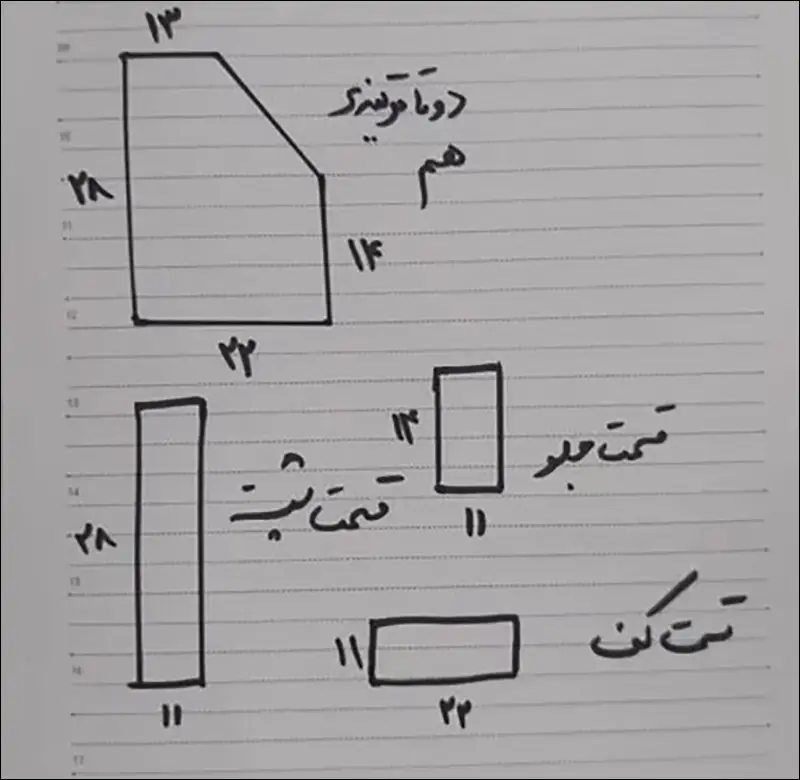 ۱۳
دوتا قرینه‌ی
۲۸
هم
۱۴
۲۲
۱۴
قسمت جلو
۱۱
قسمت پشت
۲۸
۱۱
قسمت کف
۱۱
۲۲